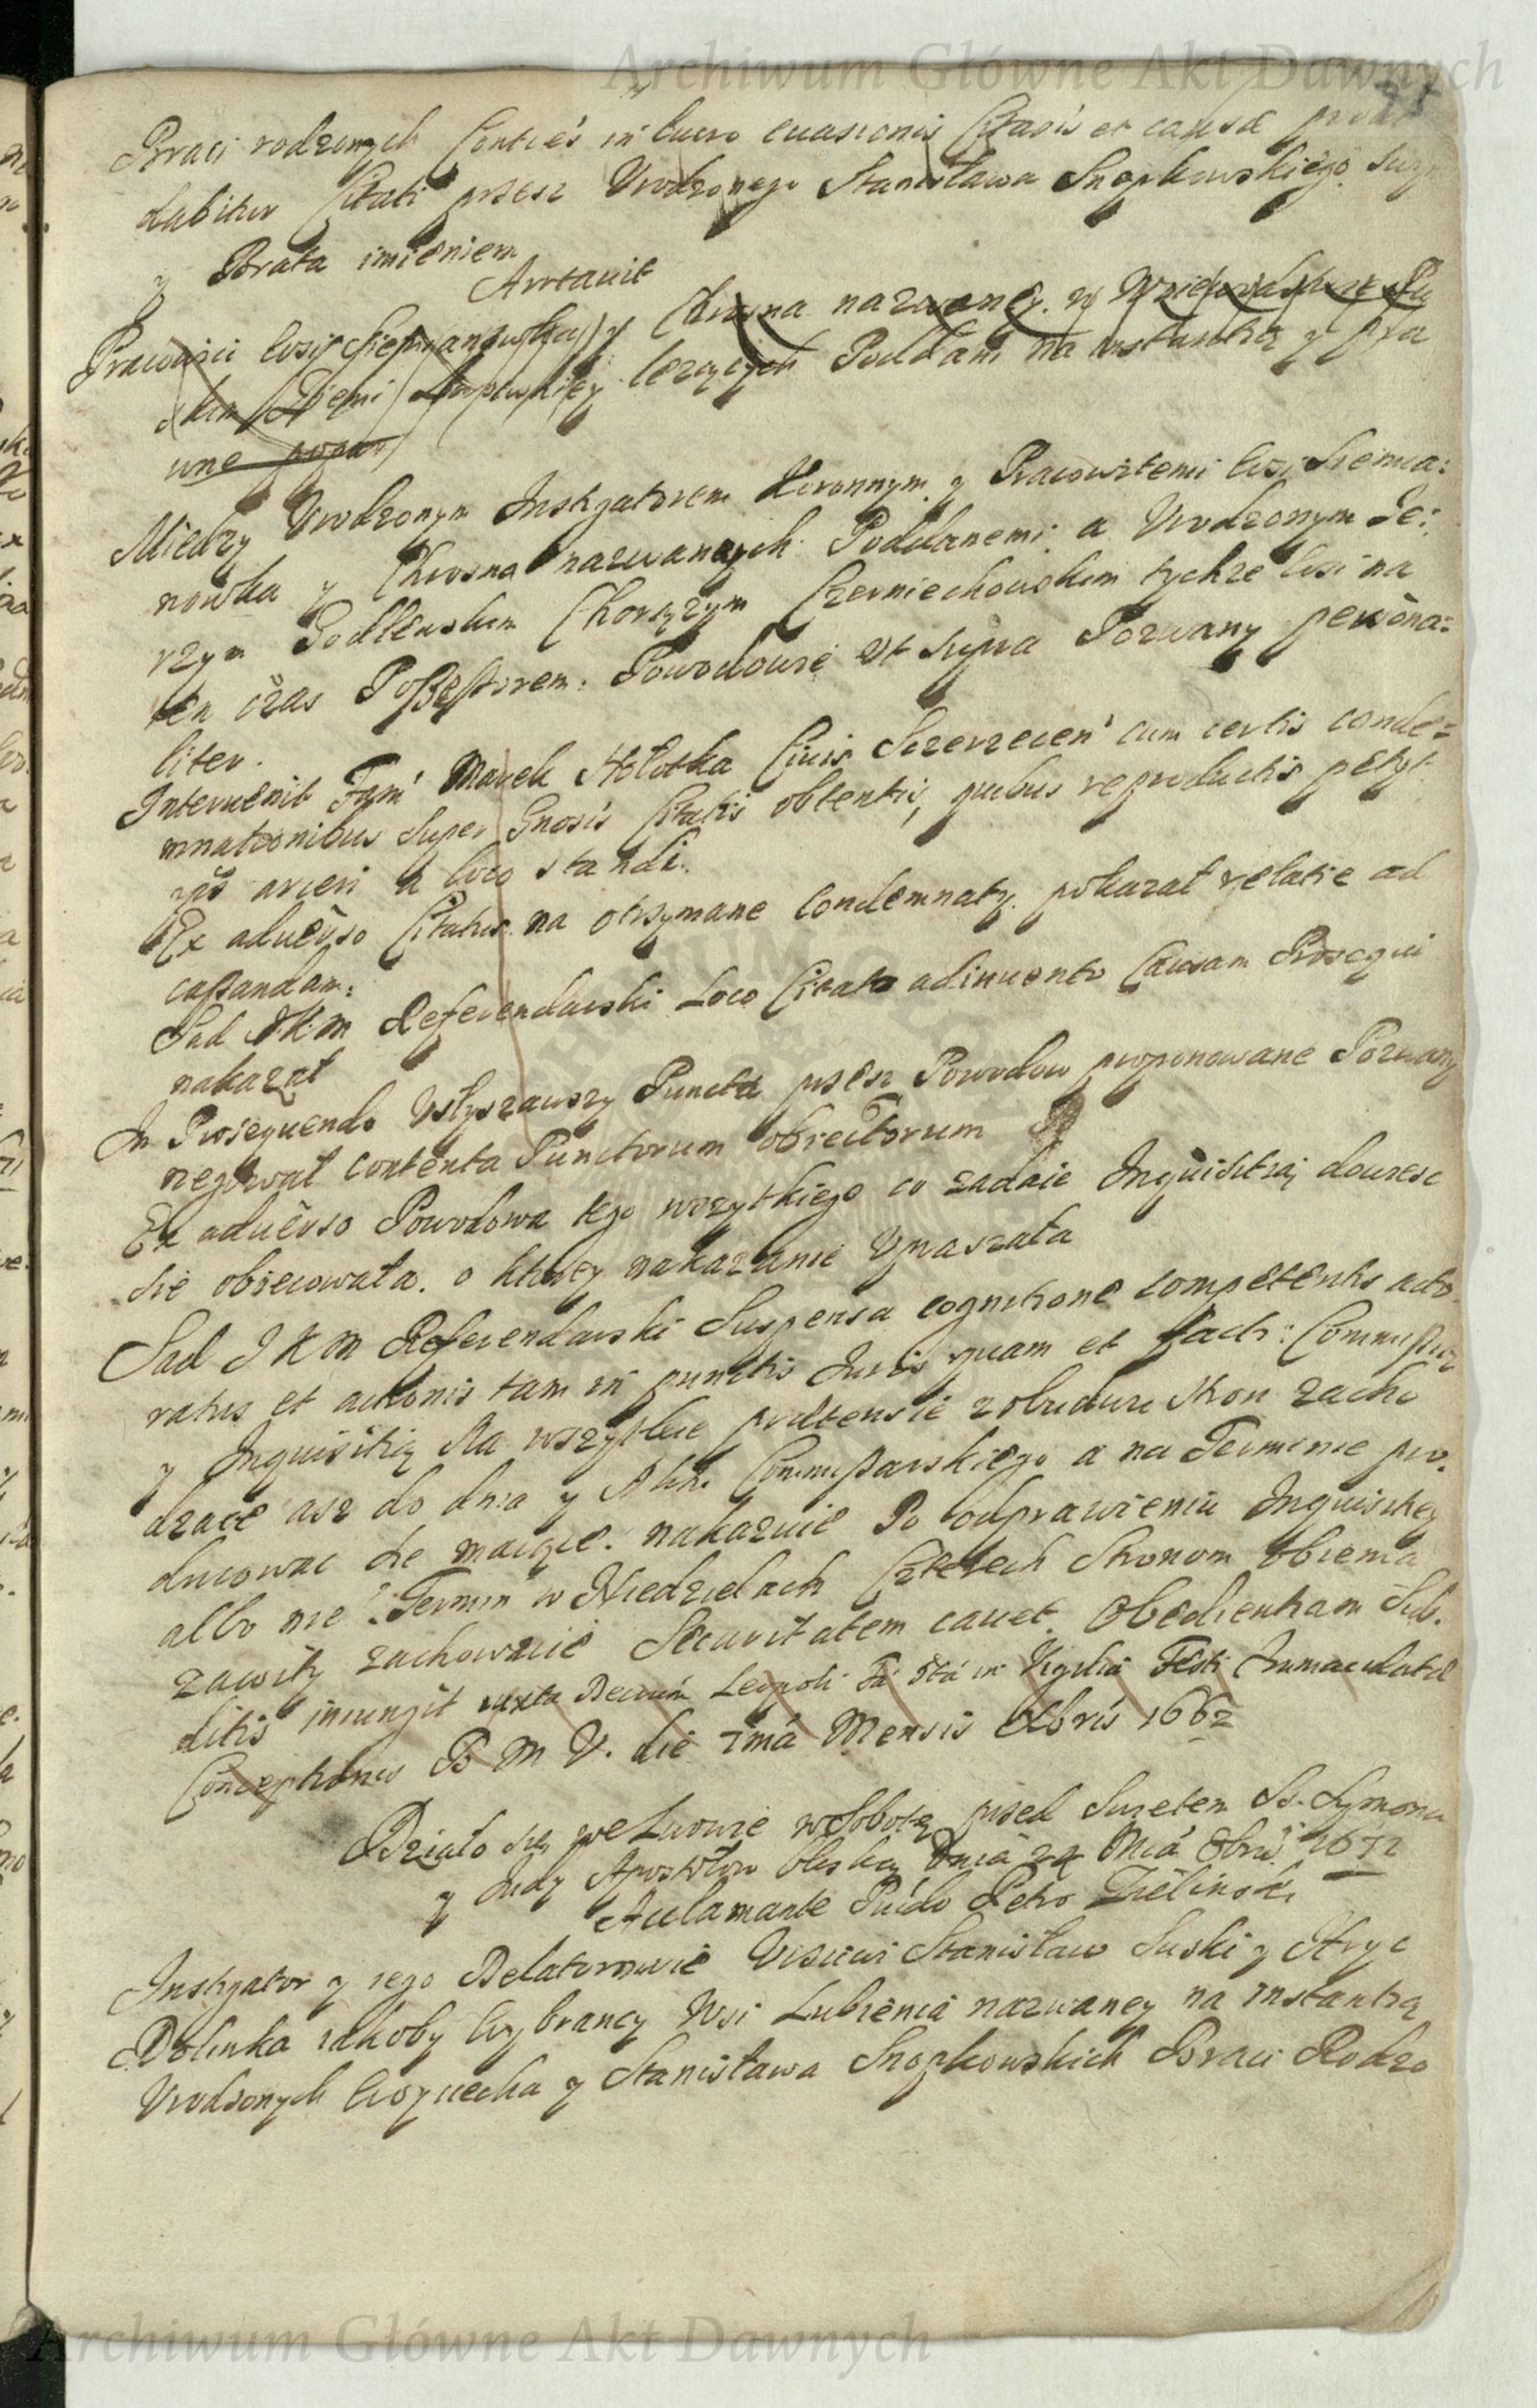 Archiwum Główne Akt Dawnych
Braci rodzonych Conties in lucro euasionis Citatis et causa
dabitur Citati przez Urodzonego Stanisława Snopkowskiego
y Brata imieniem
Arrtauit
Pracowici wsi Siemianowka y Chrosna nazwaney w Woiewodstwie Ru
skim Ziemi Lwowskiey lezących Poddani na instantią y
une
Miedzy Urodzonym Instygatorem Koronnym y Pracowitemi wsi Siemia:
nowka y Chrosna nazwanych Poddanemi a Urodzonym Je:
rzym Podlewskim Chorążym Czerniechowskim tychze wsi na
ten czas Possessorem. Powodowie ut supra Pozwany persona:
liter.
Interuenit Fam Marek Hołotka Ciuis Szczerzecen cum certis conde=
mnationibus super Gnosis Citatis obtentis, quibus reproductis petyt
arceri a loco standi.
Ex aduerso Citatus na otrzymane Condemnaty pokazał relatie ad
cassandam.
Sad JKM Referendarski Loco Citato adinuento Causam Prosequi
nakazał
In Prosequendo Usłyszawszy Puncta przez Powodow proponowane Pozwany
negował contenta Punctorum obiectorum
Ex aduerso Powodowa tego wszytkiego co zadaie Inquisitią dowiesc
sie obiecowała. o ktorey nakazanie Upraszała
Sad JKM Referendarski Suspensa cognitione competentis acto
ratus et actionis tam in punctis Juris quam et facti: Commissią
y Inquisitią Na wszytkie praetensie z obudwu stron zacho
dzace asz do dnia y Aktu Commissarskiego a na Terminie pro
ducowac sie maiące. nakazuie Po odprawieniu Inquisitey
albo nie. Termin w Niedzielach Czterech Stronom obiema
zawity zachowuie Securitatem cauet. Obedientiam Sub.
ditis iniungit iuxta Decretum Leopoli in Vigilia Festi Immaculatae
Conceptionis B M V. die 7ma Mensis Xbris 1662
Działo się we Lwowie w Sobotę przed Swietem SS. Symona
y Judy Apostołow bliską Dnia 24 Mca 8bris 1672
Acclamante Petro Zielinski
Instygator y iego Delatorowie Uczciwi Stanisław Suski y Hryc
Dolinka iakoby Wybrancy Wsi Lubienia nazwaney na instantią
Urodzonych Woyciecha y Stanisława Snopkowskich Braci Rodzo
Archiwum Główne Akt Dawnych